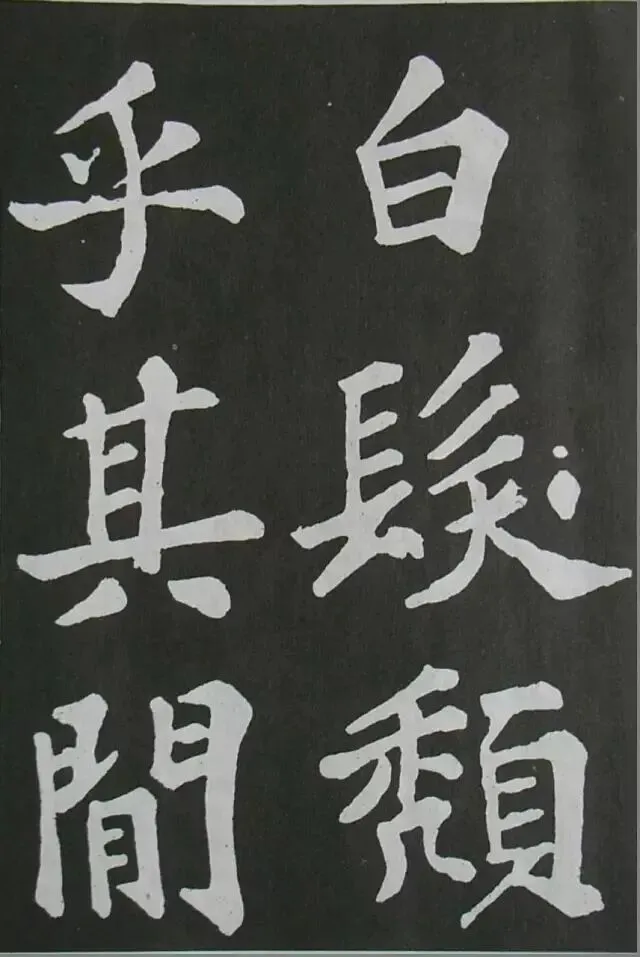 白髮頹
乎其間